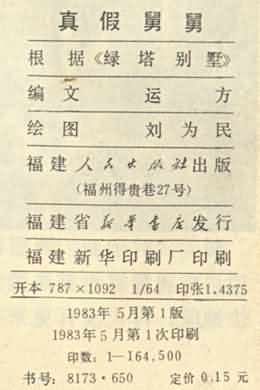 真假舅舅
根据《绿塔别墅》
编文 运方
绘图 刘为民
福建人民出版社出版
(福州得贵巷27号)
福建省新华书店发行
福建新华印刷厂印刷
开本 787×1092 1/64 印张1.4375
1983年5月第1版
1983年5月第1次印刷
印数：1—164,500
书号：8173·650 定价 0.15 元